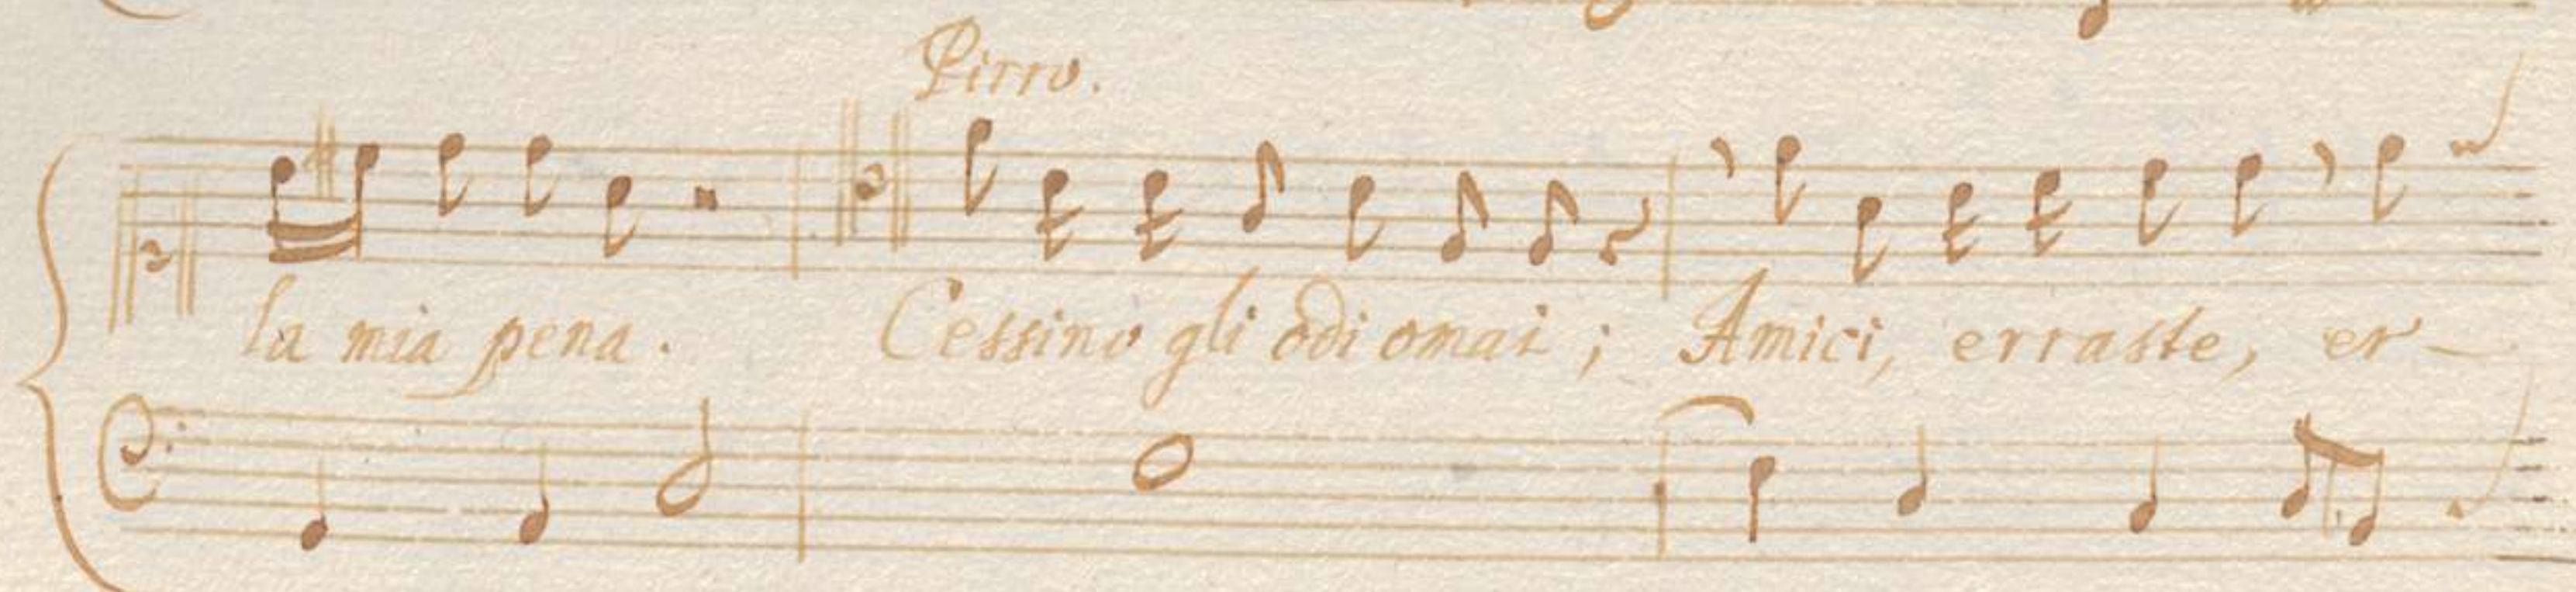 Pirro.
la mia pena. Cessino gli odi omai; Amici, erraste, er-